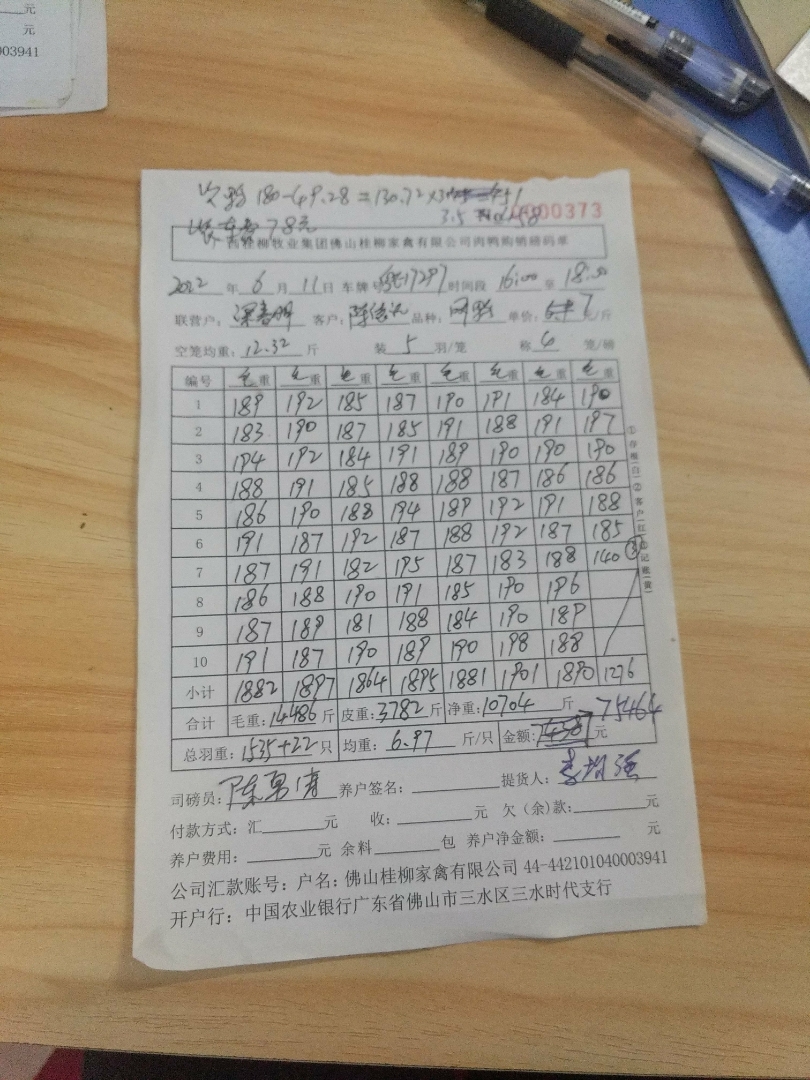 元
元
003941
180-49.28=130.72×3
3.5
0000373
78元
西桂柳牧业集团佛山桂柳家禽有限公司肉鸭购销磅码单
2022 年 6 月 11 日 车牌号 17297 时间段 16:00 至 18:00
联营户: 客户: 品种: 单价: 7 元/斤
空笼均重: 12.32 斤 装 5 羽/笼 称 6 笼/磅
编号 毛重 毛重 毛重 毛重 毛重 毛重 毛重 毛重
1 189 192 185 187 190 191 184 190
2 183 190 187 185 191 188 191 197
3 194 192 184 191 189 190 190 190
4 188 191 185 188 188 187 186 186
5 186 190 188 194 189 192 191 188
6 191 187 192 187 188 192 187 185
7 187 191 182 195 187 183 188 140 ③
8 186 188 190 191 185 190 196
9 187 189 181 188 184 190 189
10 191 187 190 189 190 198 188
小计 1882 1897 1864 1895 1881 1901 1890 1276
合计 毛重: 14486 斤 皮重: 3782 斤 净重: 10704 斤 75464
总羽重: 1535+22 只 均重: 6.97 斤/只 金额: 元
①存根(白)②客户(红)③记账(黄)
司磅员: 养户签名: 提货人:
付款方式: 汇 元 收: 元 欠(余)款: 元
养户费用: 元 余料 包 养户净金额: 元
公司汇款账号: 户名: 佛山桂柳家禽有限公司 44-442101040003941
开户行: 中国农业银行广东省佛山市三水区三水时代支行